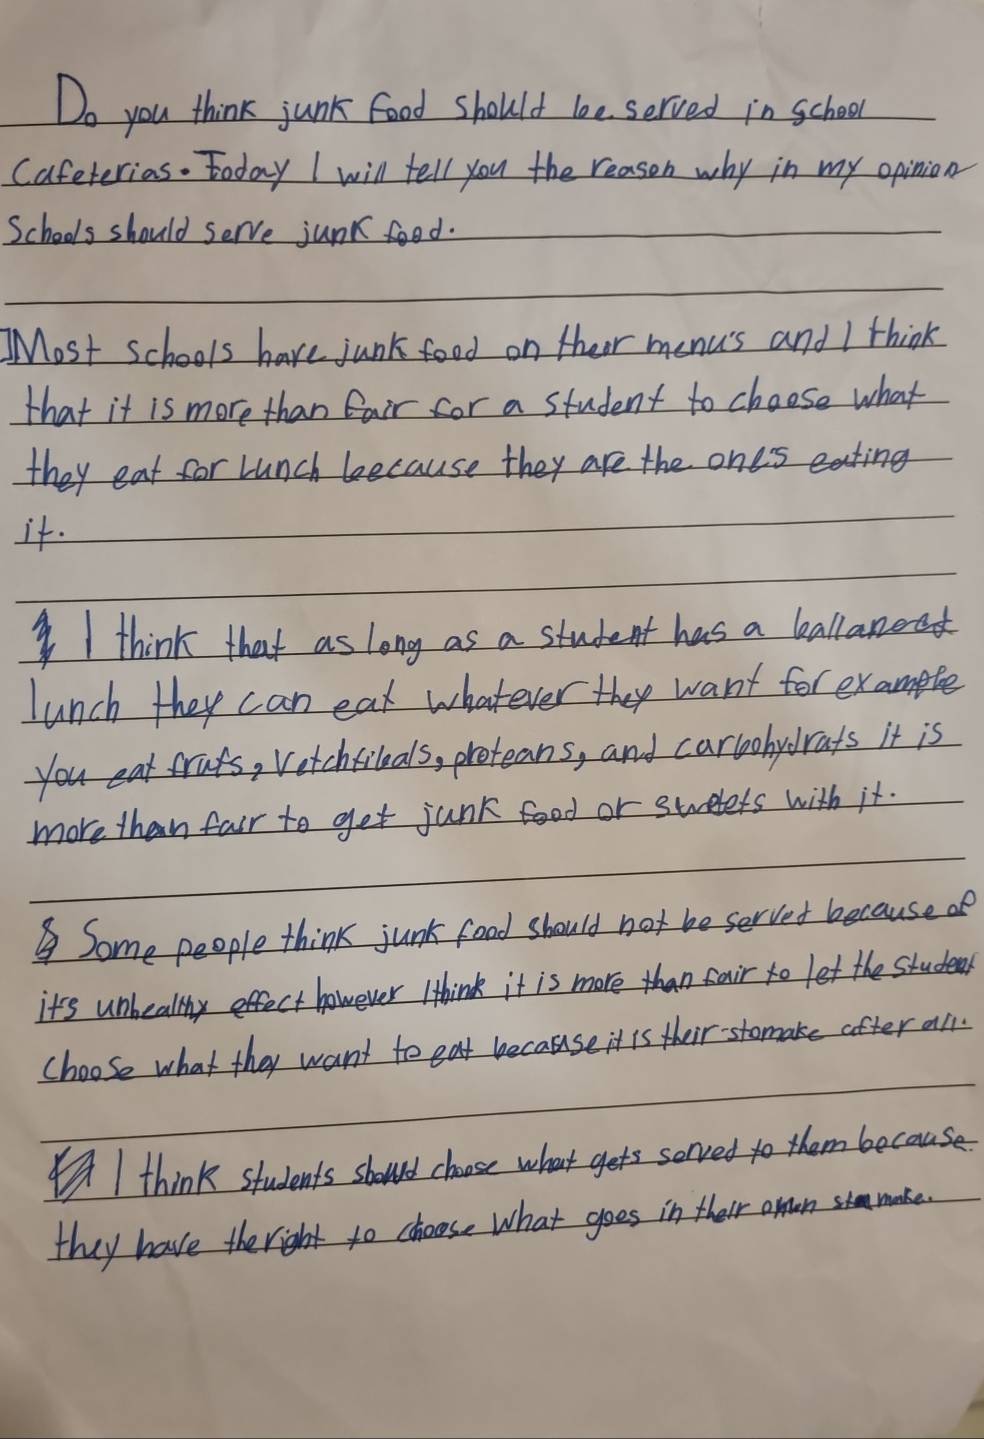 Do you think junk food should be served in school
Cafeterias. Today I will tell you the reason why in my opinion
Schools should serve junk food.
Most schools have junk food on their menu's and I think
that it is more than fair for a student to choose what
they eat for lunch because they are the one's eating
it.
I think that as long as a student has a ballanced
lunch they can eat whatever they want for example
you eat fruts, vetchtibals, proteans, and carbohydrats it is
more than fair to get junk food or sweets with it.
Some people think junk food should not be served because of
it's unhealthy effect however I think it is more than fair to let the student
choose what they want to eat because it is their stomake after all.
I think students should choose what gets served to them because
they have the right to choose what goes in their own stomake.